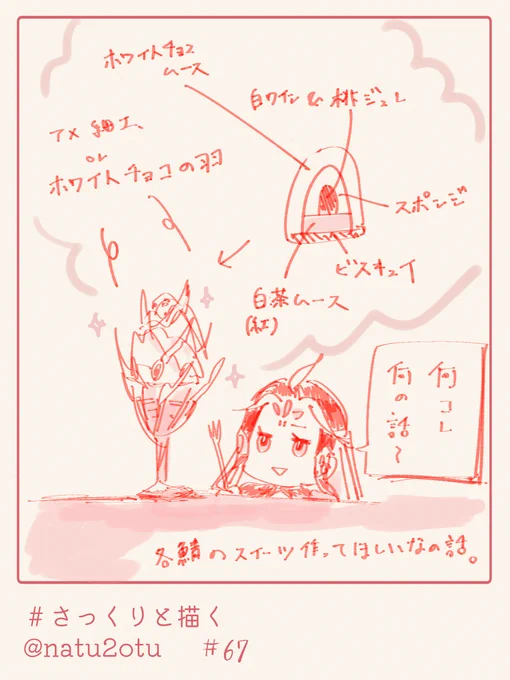 ホワイトチョコ
ムース
白ワイン & 桃ジュレ
アメ細工
or
ホワイトチョコの羽
スポンジ
ビスキュイ
白茶ムース
(紅)
何コレ
何の話〜
各鯖のスイーツ作ってほしいなの話。
#さっくりと描く
@natu2otu #67